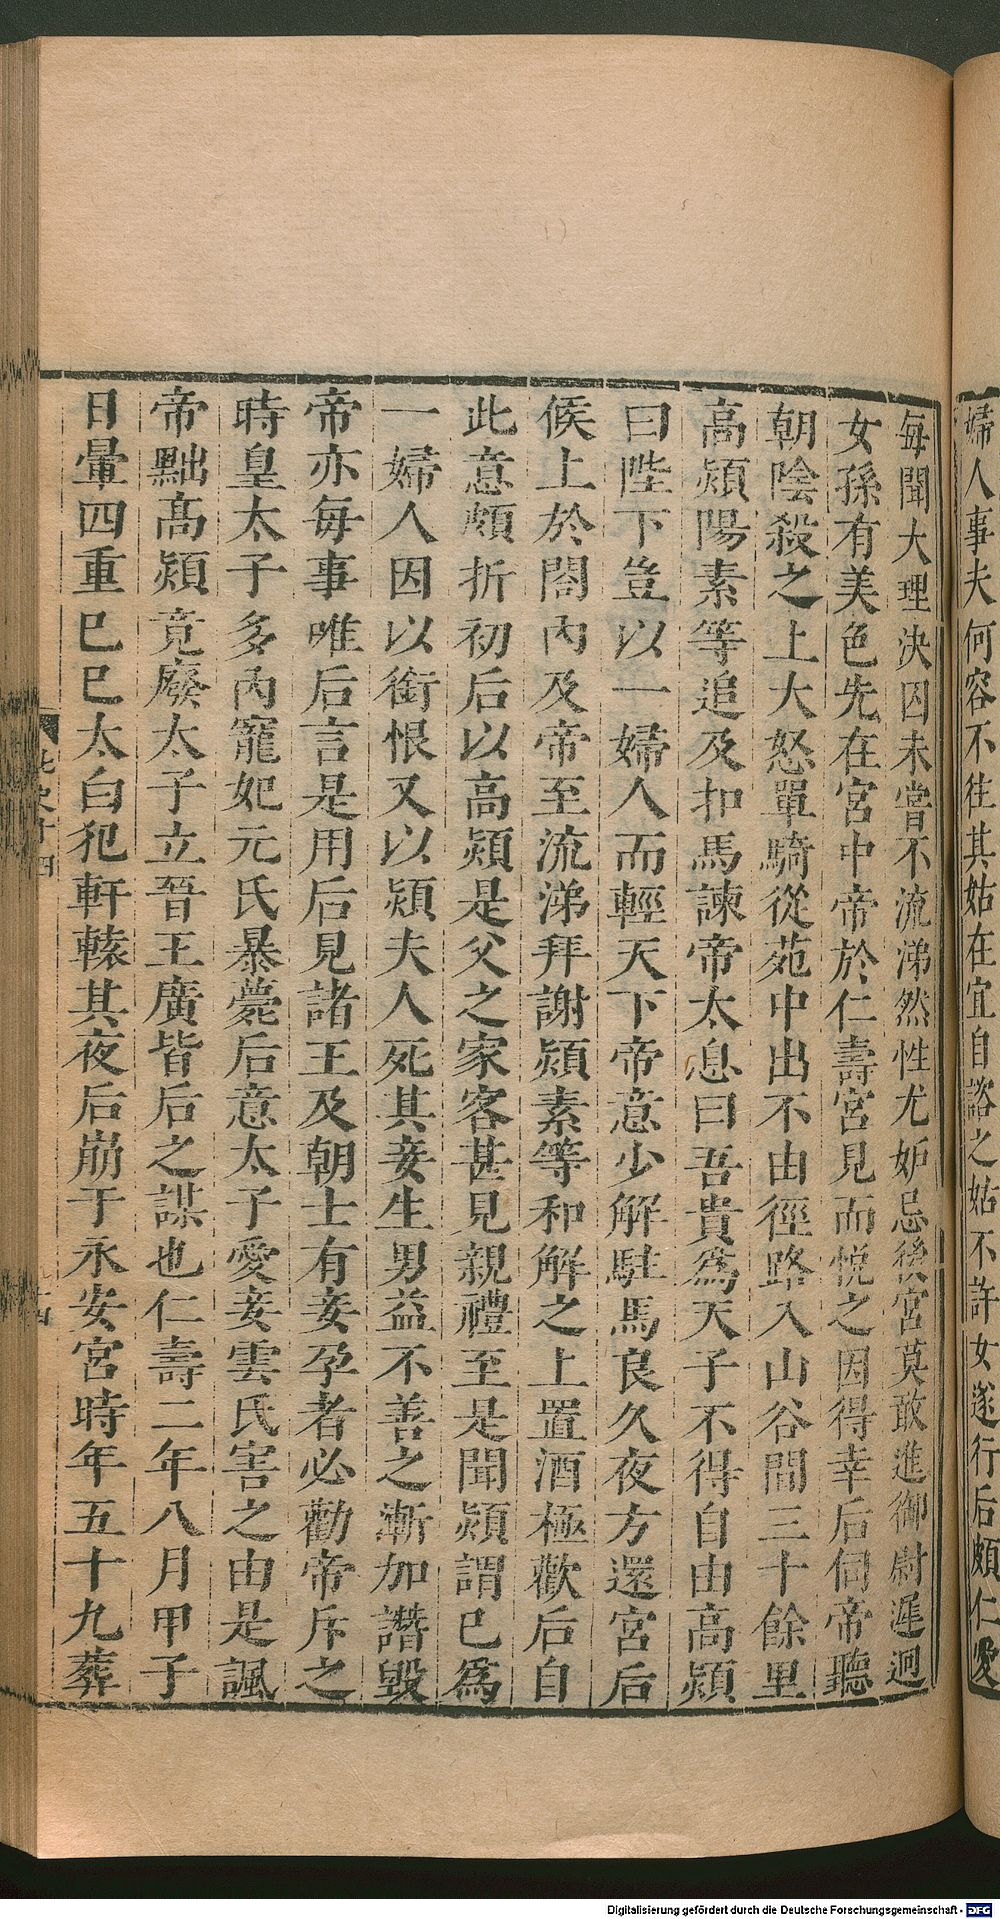 婦人事夫何容不往其姑在宜自諮之姑不許女遂行后頗仁愛
每聞大理決囚未嘗不流涕然性尤妒忌後宮莫敢進御尉遲迥
女孫有美色先在宮中帝於仁壽宮見而悅之因得幸后伺帝聽
朝陰殺之上大怒單騎從苑中出不由徑路入山谷間三十餘里
高熲陽素等追及扣馬諫帝太息曰吾貴爲天子不得自由高熲
曰陛下豈以一婦人而輕天下帝意少解駐馬良久夜方還宮后
候上於閤內及帝至流涕拜謝熲素等和解之上置酒極歡后自
此意頗折初后以高熲是父之家客甚見親禮至是聞熲謂己爲
一婦人因以銜恨又以熲夫人死其妾生男益不善之漸加譖毀
帝亦每事唯后言是用后見諸王及朝士有妾孕者必勸帝斥之
時皇太子多內寵妃元氏暴薨后意太子愛妾雲氏害之由是諷
帝黜高熲竟廢太子立晉王廣皆后之謀也仁壽二年八月甲子
日暈四重己巳太白犯軒轅其夜后崩于永安宮時年五十九葬
北史十四
十四
Digitalisierung gefördert durch die Deutsche Forschungsgemeinschaft - DFG